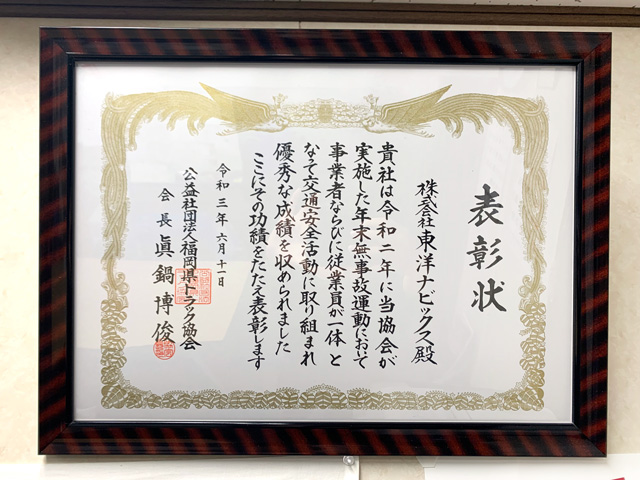 表彰状
株式会社東洋ナビックス殿
貴社は令和二年に当協会が
実施した年末無事故運動において
事業者ならびに従業員が一体と
なって交通安全活動に取り組まれ
優秀な成績を収められました
ここにその功績をたたえ表彰します
令和三年六月十一日
公益社団法人福岡県トラック協会
会長眞鍋博俊